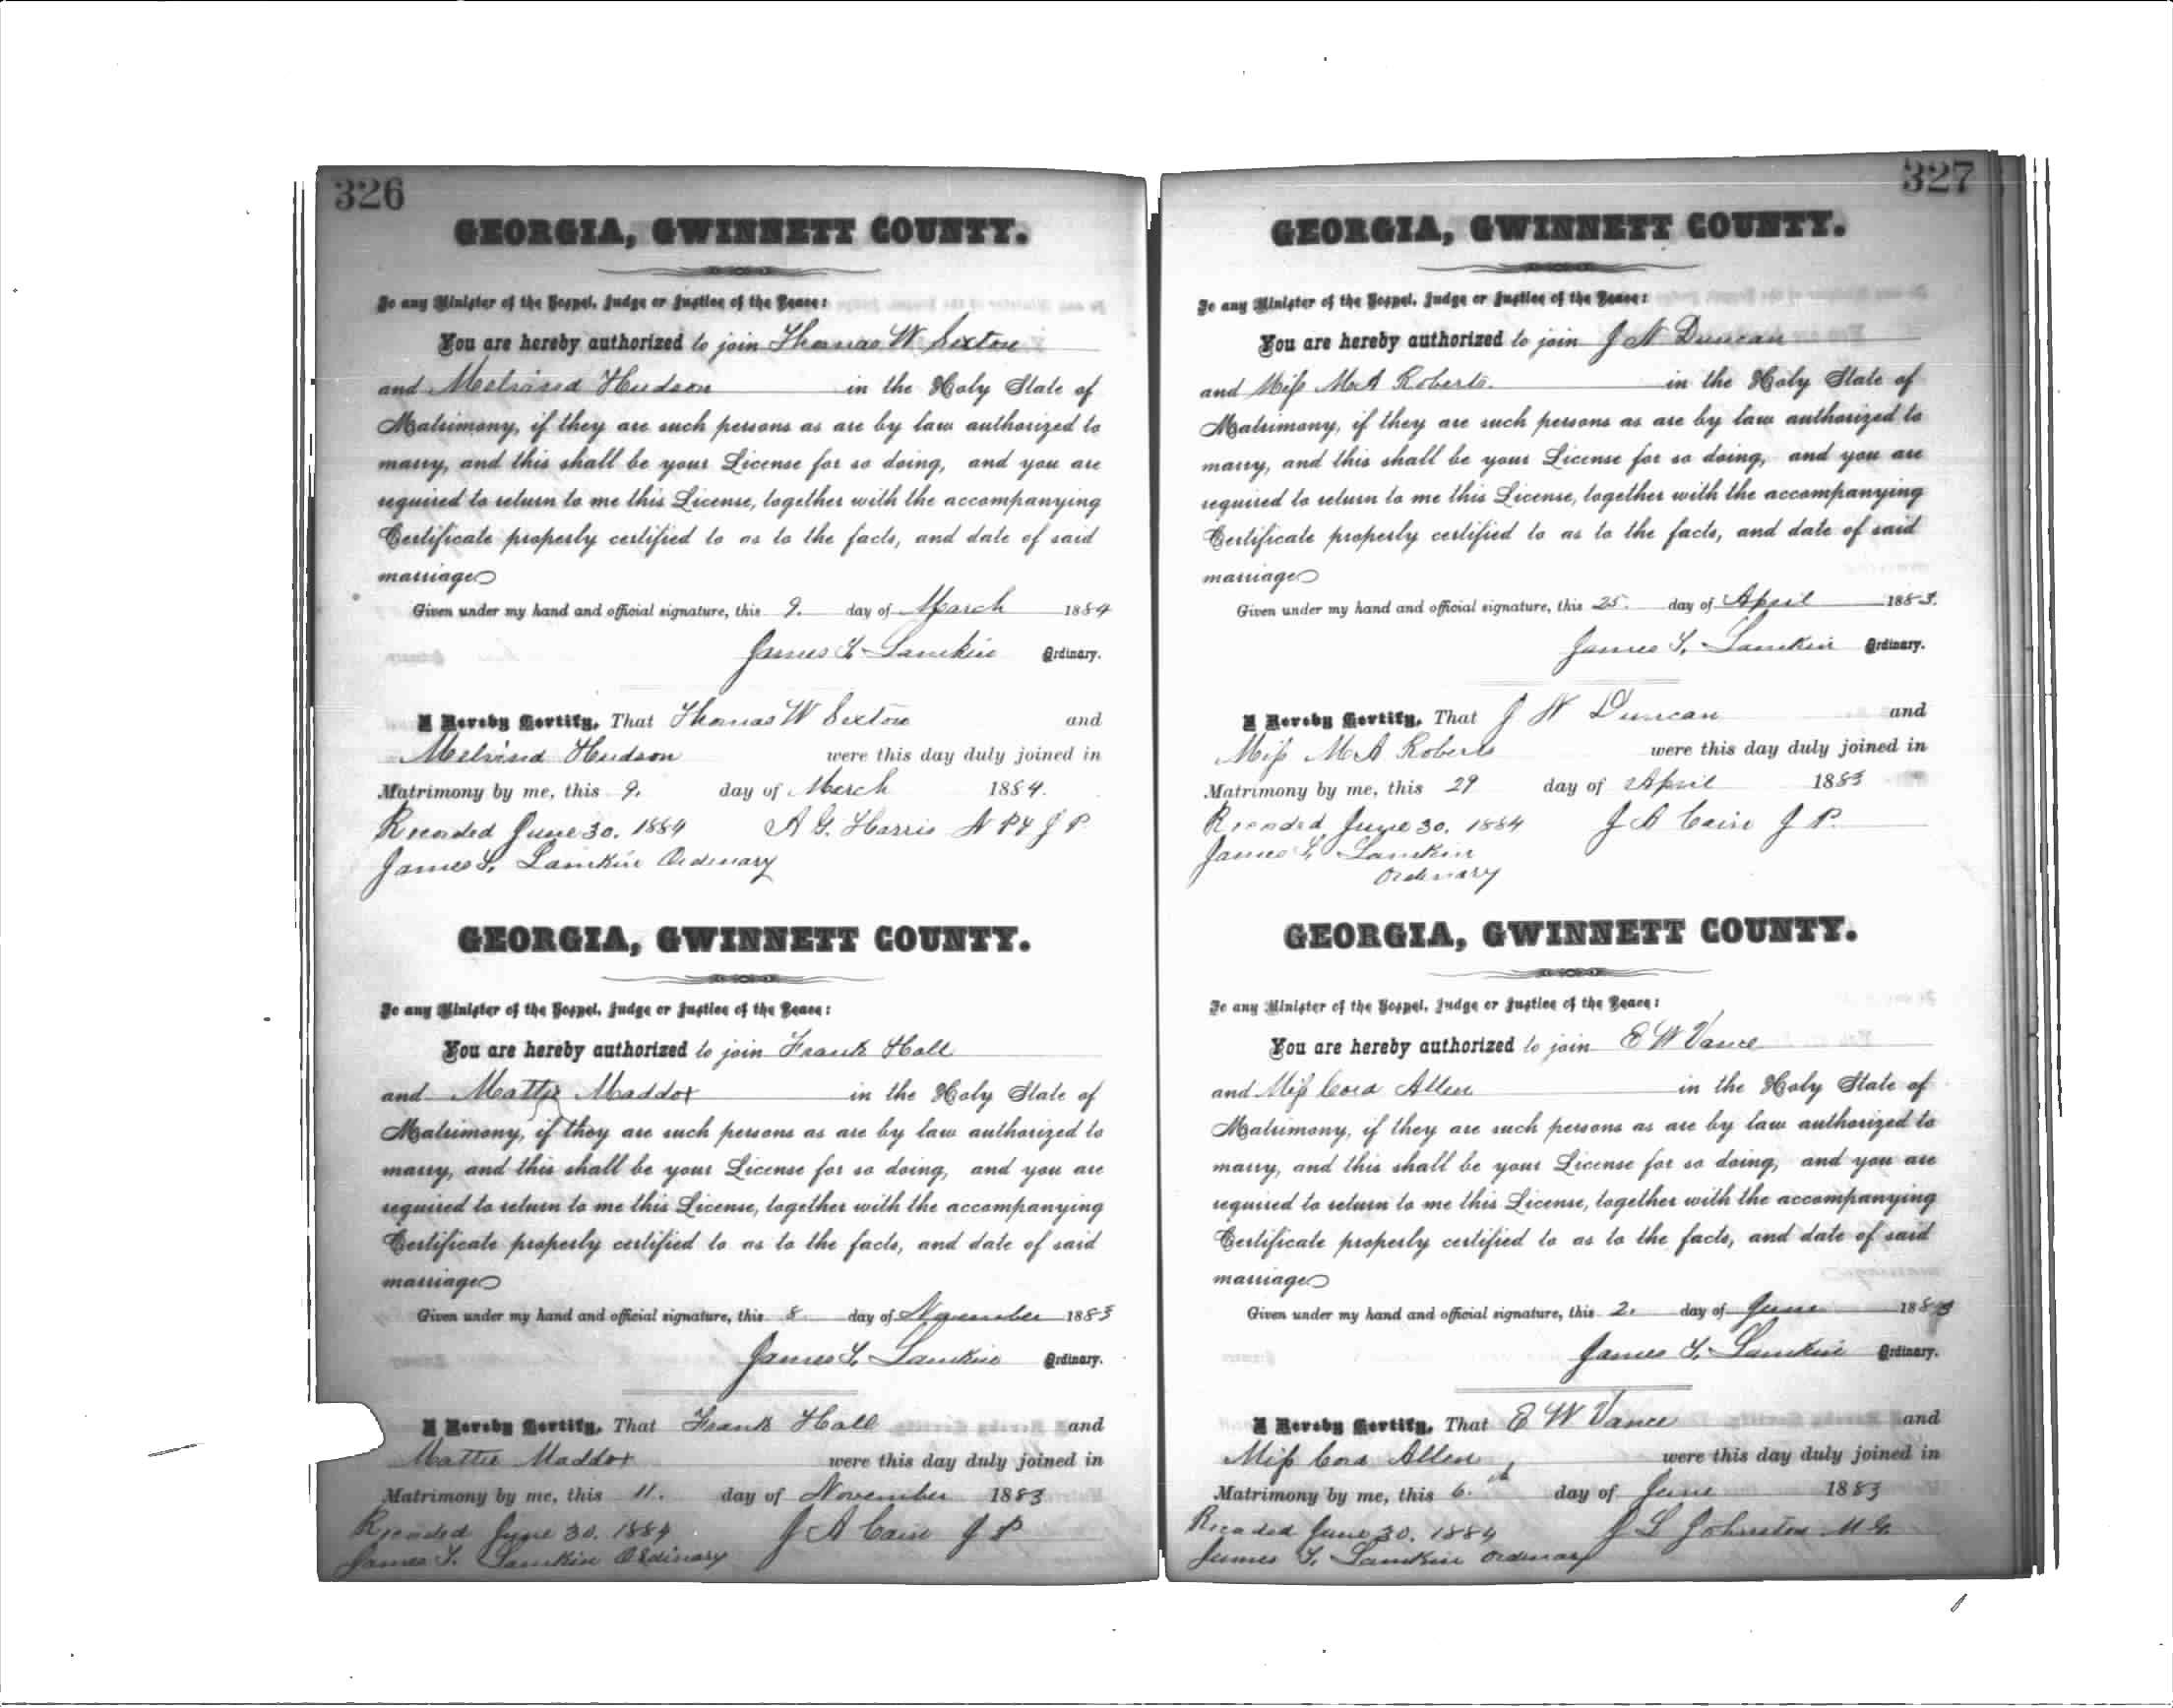 326
GEORGIA, GWINNETT COUNTY.
To any Minister of the Gospel, Judge or Justice of the Peace:
You are hereby authorized to join Thomas W Sexton
and Melvina Hudson in the Holy State of
Matrimony, if they are such persons as are by law authorized to
marry, and this shall be your License for so doing, and you are
required to return to me this License, together with the accompanying
Certificate properly certified to as to the facts, and date of said
marriage
Given under my hand and official signature, this 9. day of March 1884
James T. Lamkin Ordinary.
I Hereby Certify, That Thomas W Sexton and
Melvina Hudson were this day duly joined in
Matrimony by me, this 9. day of March 1884.
Recorded June 30. 1884 A G. Harris N P & J P
James T. Lamkin Ordinary
GEORGIA, GWINNETT COUNTY.
To any Minister of the Gospel, Judge or Justice of the Peace:
You are hereby authorized to join Frank Hall
and Mattie Maddox in the Holy State of
Matrimony, if they are such persons as are by law authorized to
marry, and this shall be your License for so doing, and you are
required to return to me this License, together with the accompanying
Certificate properly certified to as to the facts, and date of said
marriage
Given under my hand and official signature, this 8 day of November 1883
James T. Lamkin Ordinary.
I Hereby Certify, That Frank Hall and
Mattie Maddox were this day duly joined in
Matrimony by me, this 11. day of November 1883
Recorded June 30. 1884 J A Cain J P
James T. Lamkin Ordinary
327
GEORGIA, GWINNETT COUNTY.
To any Minister of the Gospel, Judge or Justice of the Peace:
You are hereby authorized to join J N Duncan
and Miss M A Roberts. in the Holy State of
Matrimony, if they are such persons as are by law authorized to
marry, and this shall be your License for so doing, and you are
required to return to me this License, together with the accompanying
Certificate properly certified to as to the facts, and date of said
marriage
Given under my hand and official signature, this 25. day of April 1883.
James T. Lamkin Ordinary.
I Hereby Certify, That J N Duncan and
Miss M A Roberts were this day duly joined in
Matrimony by me, this 29 day of April 1883
Recorded June 30. 1884 J A Cain J P.
James T. Lamkin
Ordinary
GEORGIA, GWINNETT COUNTY.
To any Minister of the Gospel, Judge or Justice of the Peace:
You are hereby authorized to join E W Vance
and Miss Cora Allen in the Holy State of
Matrimony, if they are such persons as are by law authorized to
marry, and this shall be your License for so doing, and you are
required to return to me this License, together with the accompanying
Certificate properly certified to as to the facts, and date of said
marriage
Given under my hand and official signature, this 2. day of June 1883
James T. Lamkin Ordinary.
I Hereby Certify, That E W Vance and
Miss Cora Allen were this day duly joined in
Matrimony by me, this 6.th day of June 1883
Recorded June 30. 1884 J L Johnston M G.
James T. Lamkin Ordinary